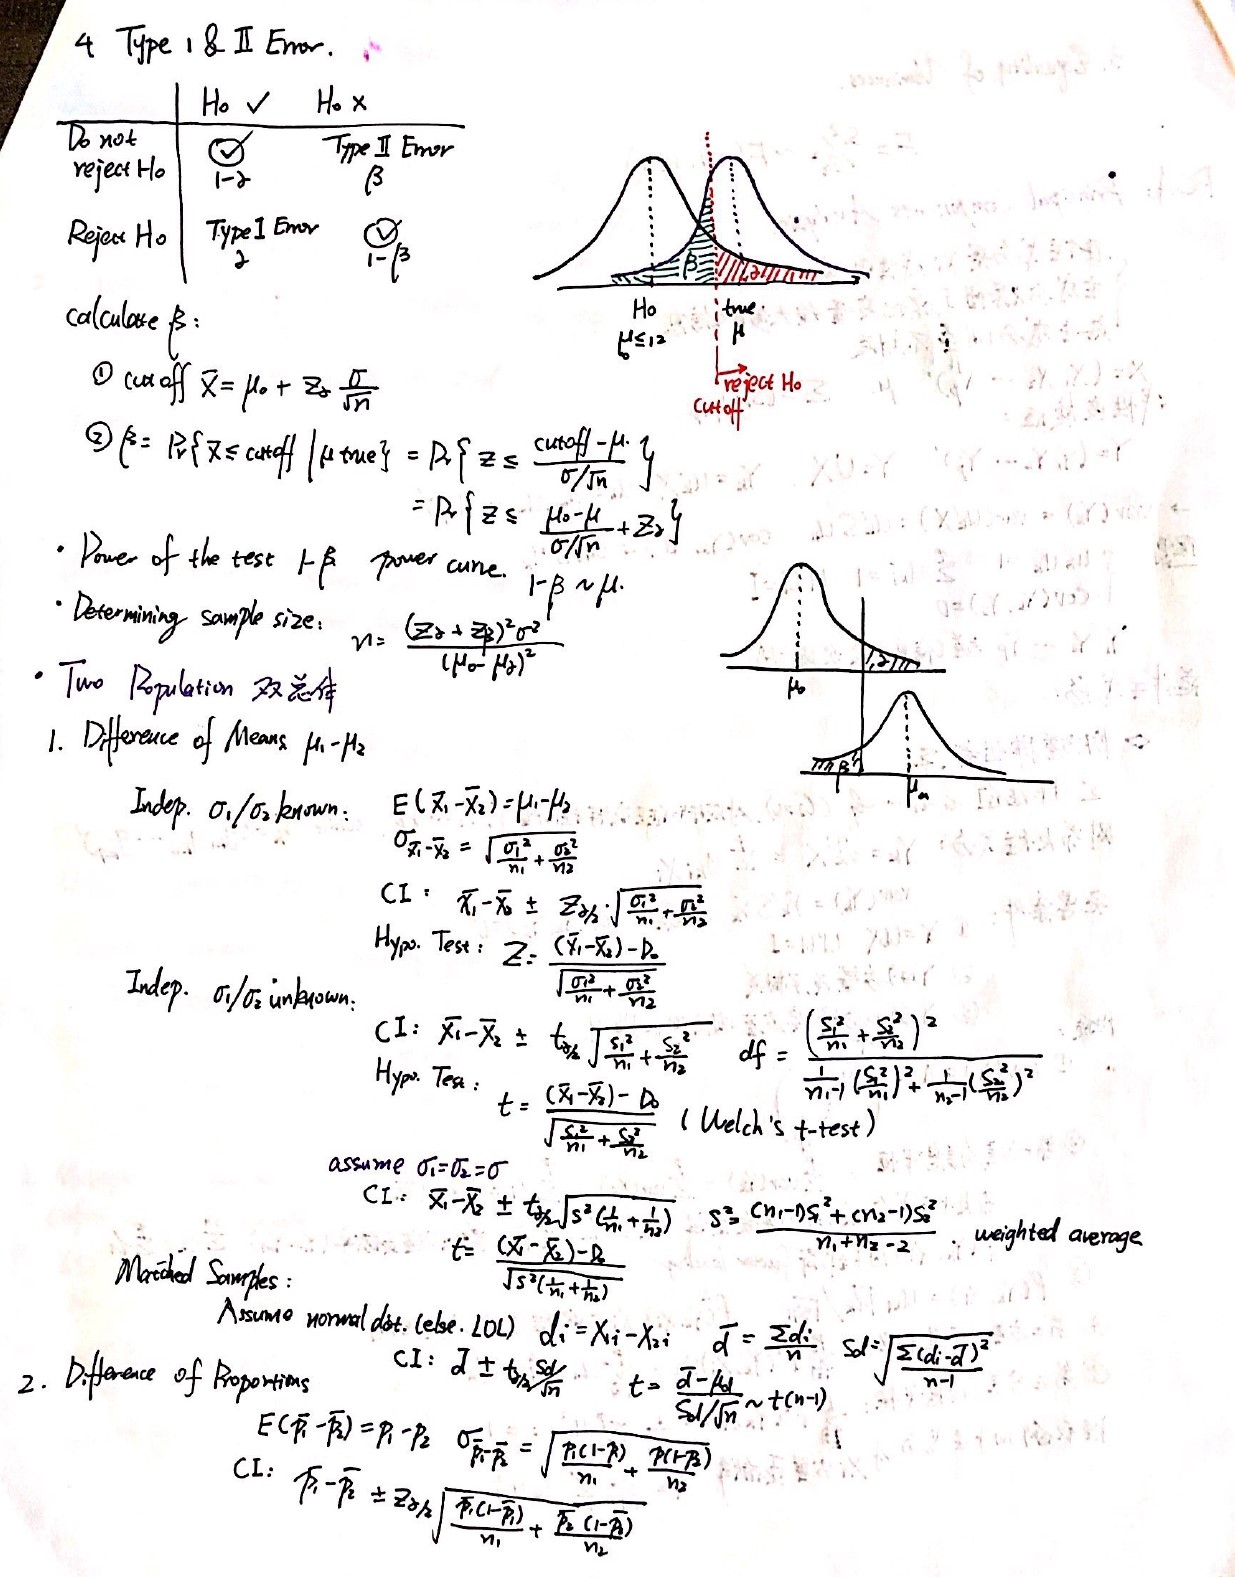 4 Type I & II Error.
H₀ ✓ H₀ ×
Do not reject H₀ ✓ 1-α Type II Error β
Reject H₀ Type I Error α ✓ 1-β
β α
H₀ true
μ₀≤12 μ
reject H₀
cutoff
Calculate β:
① cutoff x̄ = μ₀ + Zα σ/√n
② β = Pr{x̄ ≤ cutoff | μ true} = Pr{Z ≤ (cutoff-μ)/(σ/√n)}
= Pr{Z ≤ (μ₀-μ)/(σ/√n) + Zα}
· Power of the test 1-β power curve. 1-β ~ μ.
· Determining sample size: n = (Zα + Zβ)²σ²/(μ₀-μₐ)²
α
μ₀
β
μₐ
· Two Population 双总体
1. Difference of Means μ₁-μ₂
Indep. σ₁/σ₂ known: E(x̄₁-x̄₂) = μ₁-μ₂
σx̄₁-x̄₂ = √(σ₁²/n₁ + σ₂²/n₂)
CI: x̄₁-x̄₂ ± Zα/2 · √(σ₁²/n₁ + σ₂²/n₂)
Hypo. Test: Z = ((x̄₁-x̄₂)-D₀)/√(σ₁²/n₁ + σ₂²/n₂)
Indep. σ₁/σ₂ unknown:
CI: x̄₁-x̄₂ ± tα/2 √(S₁²/n₁ + S₂²/n₂) df = (S₁²/n₁ + S₂²/n₂)²/(1/(n₁-1) (S₁²/n₁)² + 1/(n₂-1) (S₂²/n₂)²)
Hypo. Test: t = ((x̄₁-x̄₂)-D₀)/√(S₁²/n₁ + S₂²/n₂) (Welch's t-test)
assume σ₁=σ₂=σ
CI: x̄₁-x̄₂ ± tα/2 √(S²(1/n₁ + 1/n₂)) S² = ((n₁-1)S₁² + (n₂-1)S₂²)/(n₁+n₂-2) . weighted average
t = ((x̄₁-x̄₂)-D₀)/√(S²(1/n₁ + 1/n₂))
Matched Samples:
Assume normal dist. (else. LOL) di = X₁i-X₂i d̄ = Σdi/n Sd = √(Σ(di-d̄)²/(n-1))
CI: d̄ ± tα/2 Sd/√n t = (d̄-μd)/(Sd/√n) ~ t(n-1)
2. Difference of Proportions
E(p̄₁-p̄₂) = p₁-p₂ σp̄₁-p̄₂ = √(p₁(1-p₁)/n₁ + p₂(1-p₂)/n₂)
CI: p̄₁-p̄₂ ± Zα/2 √(p̄₁(1-p̄₁)/n₁ + p̄₂(1-p̄₂)/n₂)